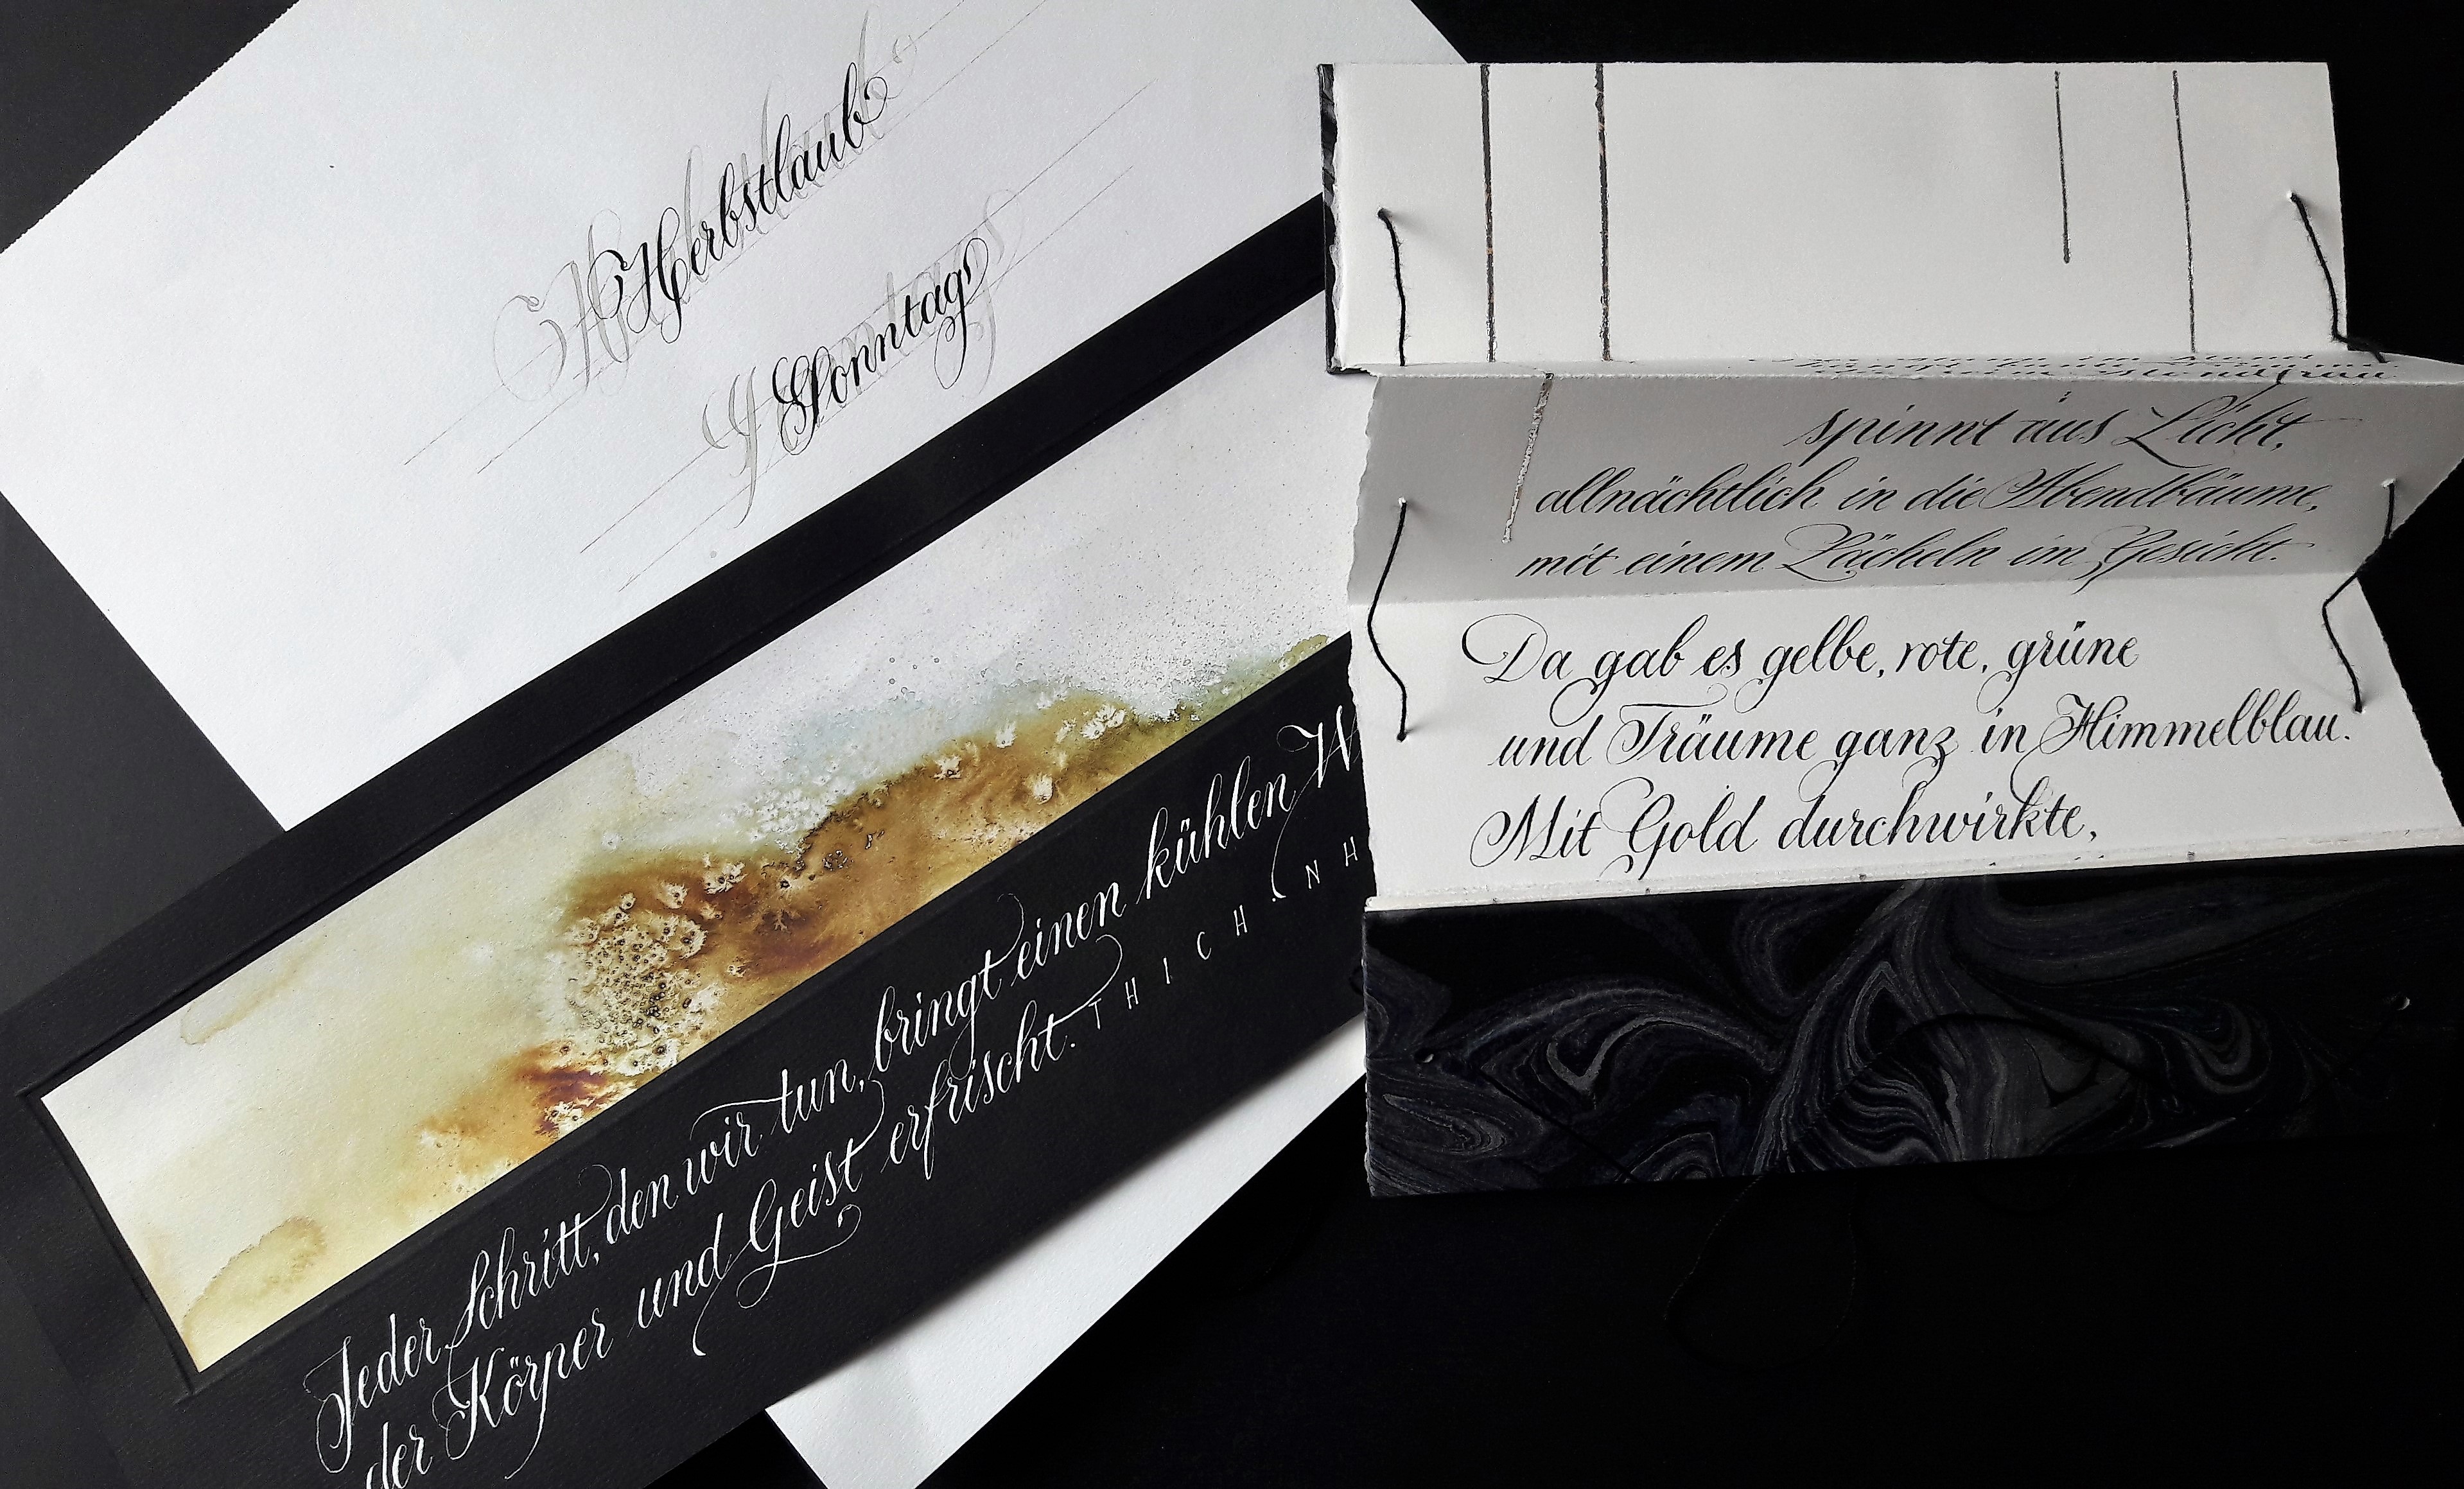 Herbstlaub
Sonntag
Jeder Schritt, den wir tun, bringt einen kühlen
der Körper und Geist erfrischt. THICH NH
spinnt aus Licht,
allnächtlich in die Abendbäume,
mit einem Lächeln im Gesicht.
Da gab es gelbe, rote, grüne
und Träume ganz in Himmelblau.
Mit Gold durchwirkte,